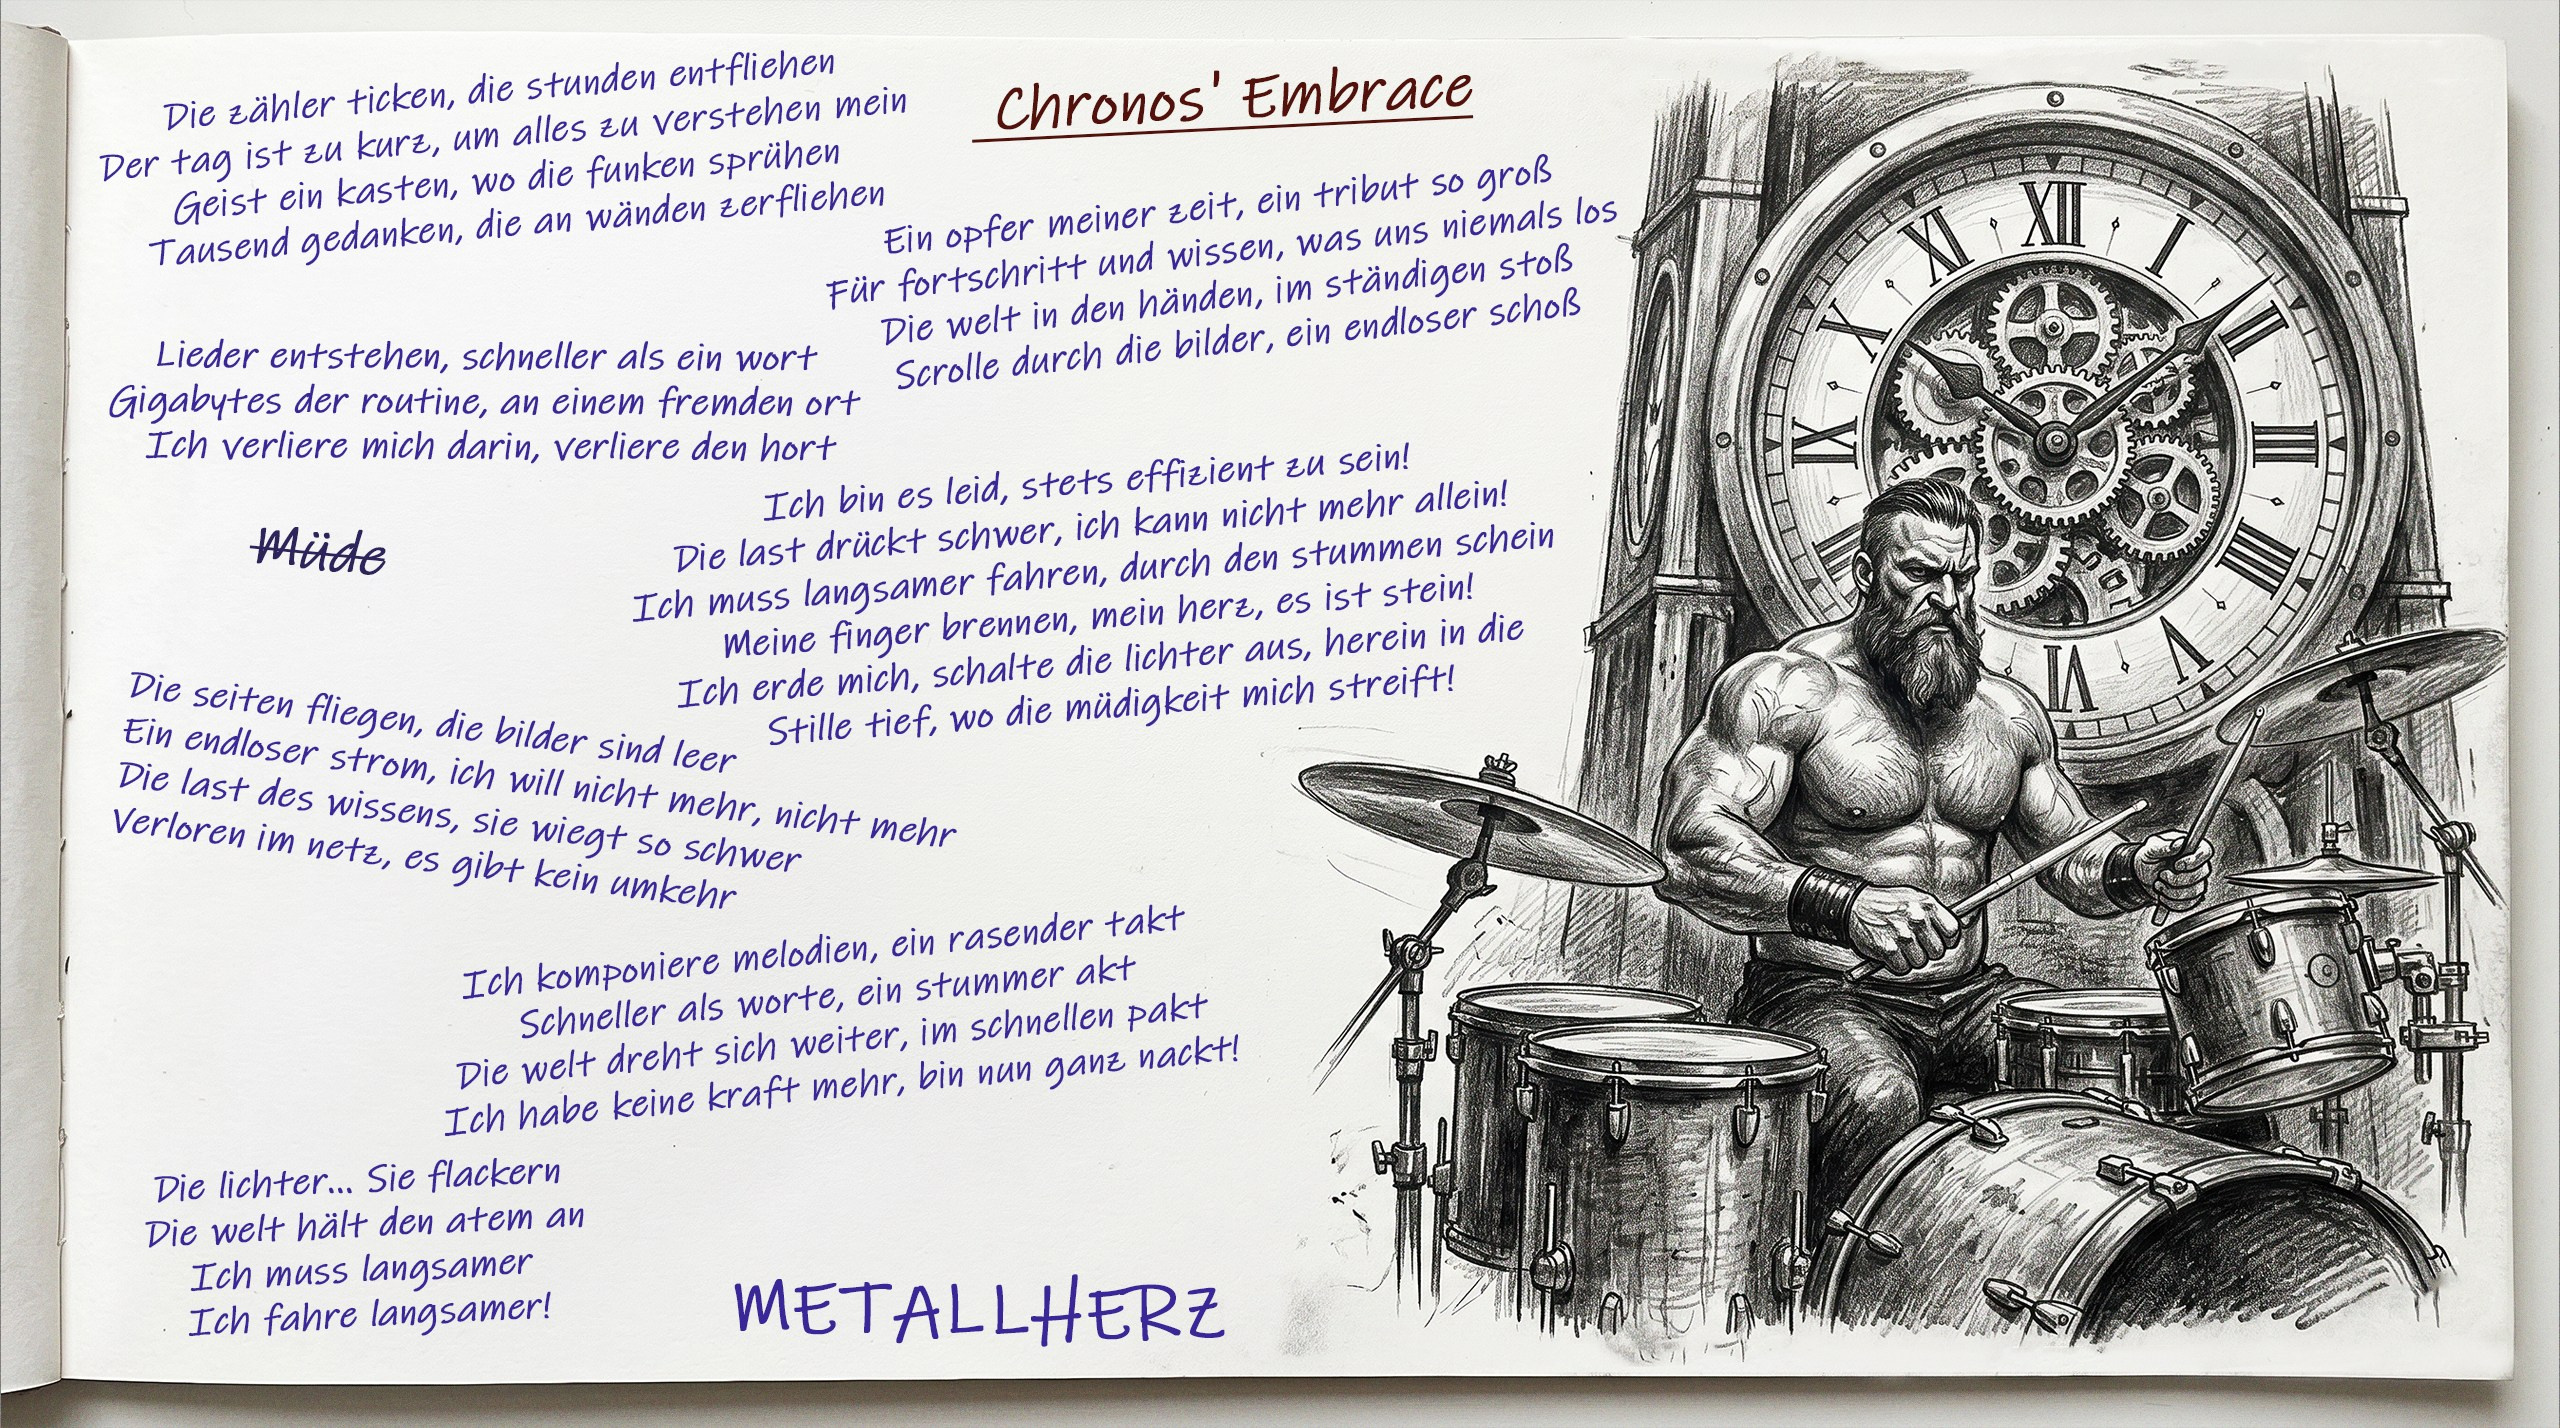 Chronos' Embrace
Die zähler ticken, die stunden entfliehen
Der tag ist zu kurz, um alles zu verstehen mein
Geist ein kasten, wo die funken sprühen
Tausend gedanken, die an wänden zerfliehen
Ein opfer meiner zeit, ein tribut so groß
Für fortschritt und wissen, was uns niemals los
Die welt in den händen, im ständigen stoß
Scrolle durch die bilder, ein endloser schoß
Lieder entstehen, schneller als ein wort
Gigabytes der routine, an einem fremden ort
Ich verliere mich darin, verliere den hort
Ich bin es leid, stets effizient zu sein!
Die last drückt schwer, ich kann nicht mehr allein!
Ich muss langsamer fahren, durch den stummen schein
Meine finger brennen, mein herz, es ist stein!
Ich erde mich, schalte die lichter aus, herein in die
Stille tief, wo die müdigkeit mich streift!
Müde
Die seiten fliegen, die bilder sind leer
Ein endloser strom, ich will nicht mehr, nicht mehr
Die last des wissens, sie wiegt so schwer
Verloren im netz, es gibt kein umkehr
Ich komponiere melodien, ein rasender takt
Schneller als worte, ein stummer akt
Die welt dreht sich weiter, im schnellen pakt
Ich habe keine kraft mehr, bin nun ganz nackt!
Die lichter... Sie flackern
Die welt hält den atem an
Ich muss langsamer
Ich fahre langsamer!
METALLHERZ
XII
I
II
III
IIII
V
VI
IX
X
XI